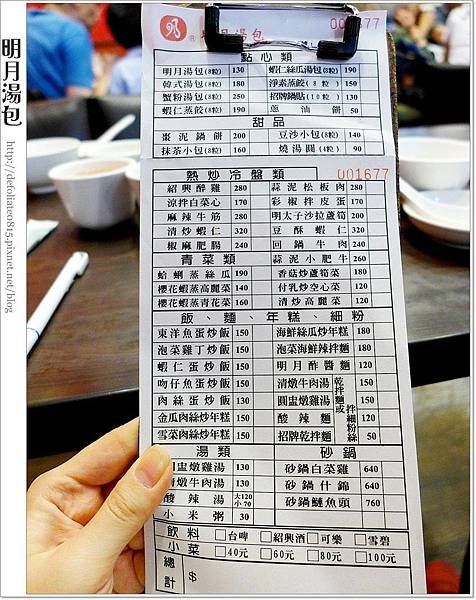 明月湯包
http://defolianeo815.pixnet.net/blog
001677
點心類
明月湯包(8粒) 130 蝦仁絲瓜湯包(8粒) 190
韓式湯包(8粒) 180 淨素蒸餃(8粒) 150
蟹粉湯包(8粒) 250 招牌鍋貼(10粒) 130
蝦仁蒸餃(8粒) 190 蔥油餅 50
甜品
棗泥鍋餅 200 豆沙小包(8粒) 140
抹茶小包(8粒) 160 燒湯圓(4粒) 90
熱炒冷盤類 001677
紹興醉雞 280 蒜泥松板肉 280
涼拌白菜心 170 彩椒拌皮蛋 170
麻辣牛筋 280 明太子沙拉蘆筍 200
清炒蝦仁 320 豆酥蝦仁 320
椒麻肥腸 240 回鍋牛肉 240
青菜類 蒜泥小肥牛 260
蛤蜊蒸絲瓜 190 香菇炒蘆筍菜 180
櫻花蝦蒸高麗菜 140 付乳炒空心菜 120
櫻花蝦蒸青花菜 160 清炒高麗菜 120
飯、麵、年糕、細粉
東洋魚蛋炒飯 150 海鮮絲瓜炒年糕 180
泡菜雞丁炒飯 150 泡菜海鮮辣拌麵 180
蝦仁蛋炒飯 150 明月酢醬麵 120
吻仔魚蛋炒飯 150 清燉牛肉湯 150
肉絲蛋炒飯 130 圓盅燉雞湯 150
金瓜肉絲炒年糕 150 酸辣麵 120
雪菜肉絲炒年糕 150 招牌乾拌麵 50
乾拌麵或拌細粉絲
湯類 砂鍋
圓盅燉雞湯 130 砂鍋白菜雞 640
清燉牛肉湯 130 砂鍋什錦 640
酸辣湯 大120 小70 砂鍋鰱魚頭 760
小米粥 30
飲料 □台啤 □紹興酒 □可樂 □雪碧
小菜 □40元 □60元 □80元 □100元
總計 $